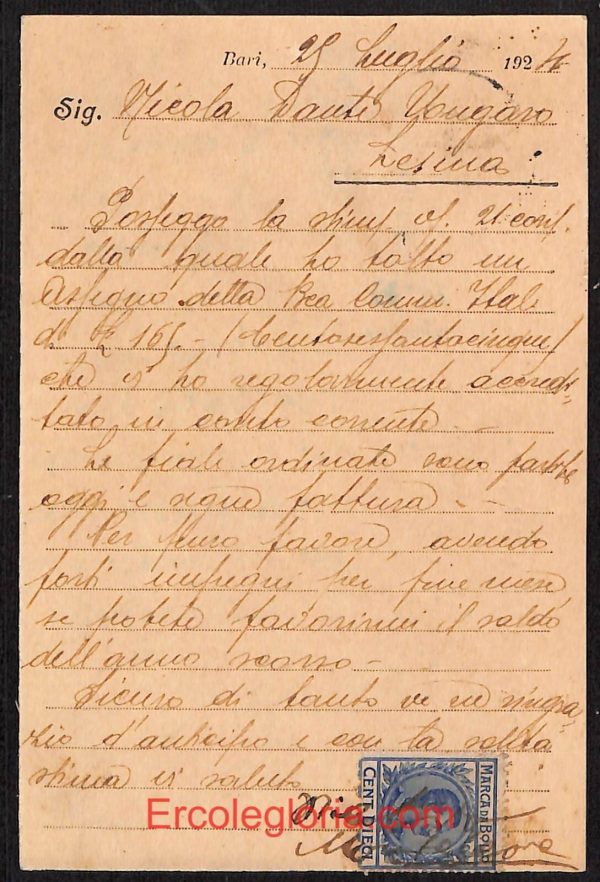 Bari, 25 Luglio 1924
Sig. Nicola Dante Vongaro
Lesina
Posseggo la stim/ v/. 21 corr.
dalla quale ho tolto un
Assegno della Bca Comm. Ital
di £ 165.- (Centosessantacinque)
che vi ho regolarmente accredi-
tato in conto corrente. -
Le fiale ordinate sono partite
oggi e segue fattura - -
Per puro favore, avendo
forti impegni per fine mese,
se potete favorirmi il saldo
dell'anno scorso -
Sicuro di tanto ve ne ringra-
zio d'anticipo e con la solita
stima vi saluto
MARCA DA BOLLO
CENT. DIECI
Ercolegloria.com